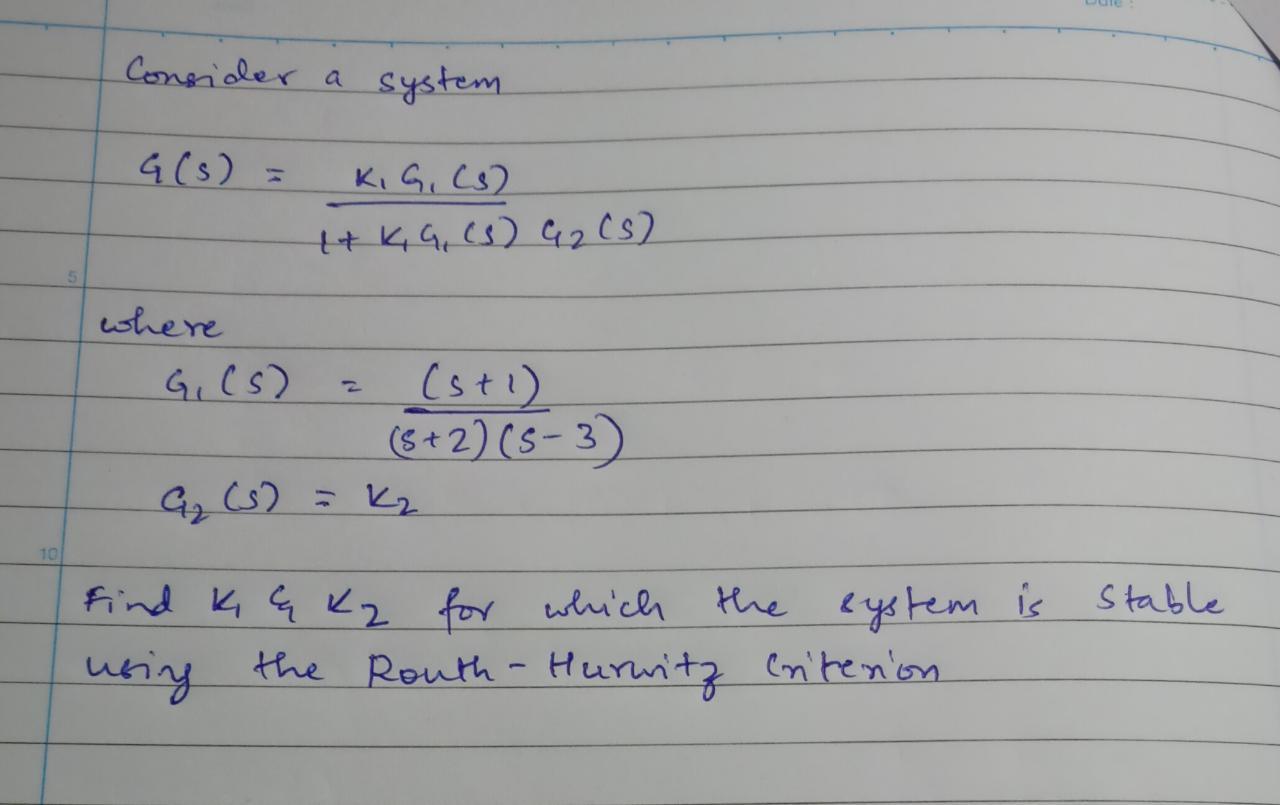 Date :
Consider a system
G(s) = K₁ G₁ (s)
1 + K₁ G₁ (s) G₂ (s)
5
where
G₁ (s) = (s+1)
(s+2) (s-3)
G₂ (s) = K₂
10
Find K₁ & K₂ for which the system is stable
using the Routh-Hurwitz Criterion